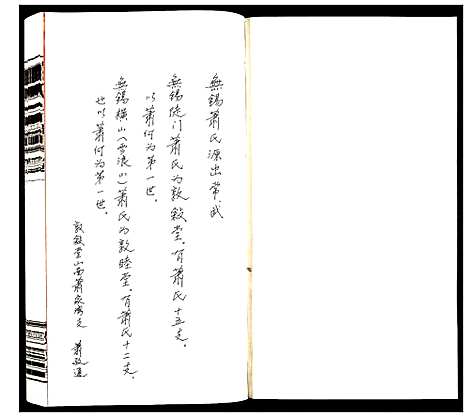 無錫蕭氏源出常武
無錫陡门蕭氏為敦敘堂，有蕭氏十五支，
以蕭何為第一世。
無錫橫山（雪浪山）蕭氏為敦睦堂，有蕭氏十二支，
也以蕭何為第一世。
敦敘堂山西蕭家支 蕭